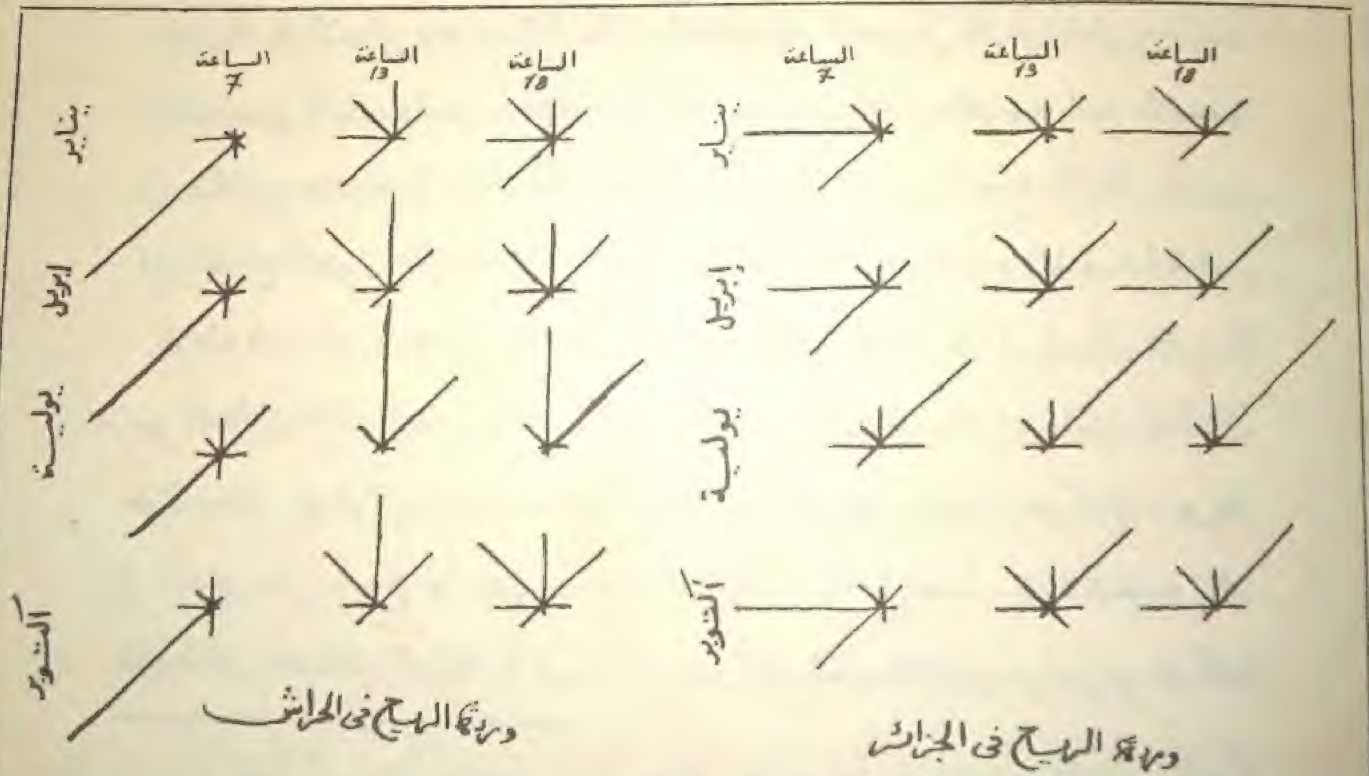 الساعة 7
الساعة 13
الساعة 18
يناير
إبريل
يولية
أكتوبر
وردة الريح فى الحراش
الساعة 7
الساعة 13
الساعة 18
يناير
إبريل
يولية
أكتوبر
وردة الريح فى الجزائر